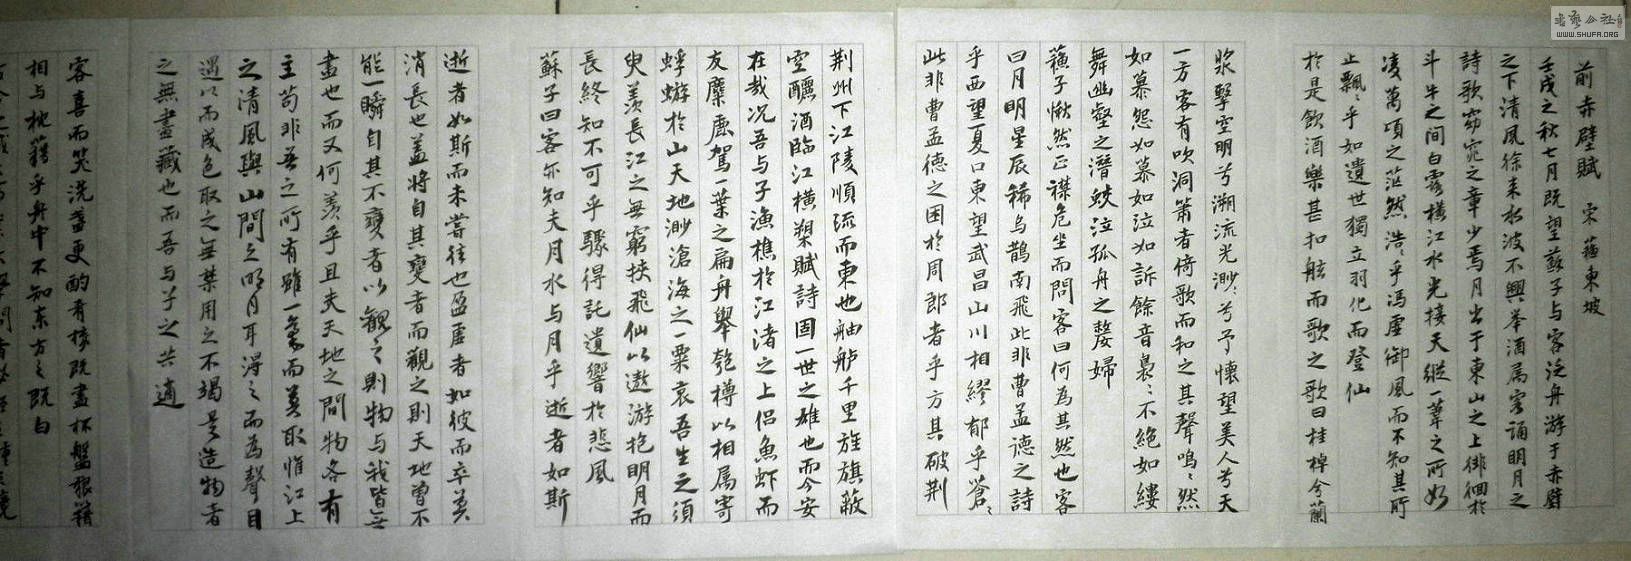 前赤壁賦 宋 蘇東坡
壬戌之秋七月既望蘇子与客泛舟游于赤壁
之下清風徐来水波不興举酒属客誦明月之
詩歌窈窕之章少焉月出于東山之上徘徊於
斗牛之间白露橫江水光接天縱一葦之所如
凌萬頃之茫然浩浩乎馮虛御風而不知其所
止飄飄乎如遺世獨立羽化而登仙
於是飲酒樂甚扣舷而歌之歌曰桂棹兮蘭
漿擊空明兮溯流光渺渺兮予懷望美人兮天
一方客有吹洞簫者倚歌而和之其聲嗚嗚然
如慕怨如慕如泣如訴餘音裊裊不絕如縷
舞幽壑之潛蛟泣孤舟之嫠婦
蘇子愀然正襟危坐而問客曰何為其然也客
曰月明星辰稀烏鵲南飛此非曹孟德之詩
乎西望夏口東望武昌山川相繆郁乎蒼蒼
此非曹孟德之困於周郎者乎方其破荆
荆州下江陵順流而東也舳舻千里旌旗蔽
空釃酒臨江横槊賦詩固一世之雄也而今安
在哉况吾与子漁樵於江渚之上侣魚虾而
友麋鹿駕一葉之扁舟舉匏樽以相属寄
蜉蝣於山天地渺滄海之一粟哀吾生之須
臾羨長江之無窮挾飛仙以遨游抱明月而
長終知不可乎驟得託遺響於悲風
蘇子曰客亦知夫月水与月乎逝者如斯
逝者如斯而未嘗往也盈虚者如彼而卒莫
消長也盖將自其變者而觀之則天地曾不
能一瞬自其不變者以觀之則物与我皆無
盡也而又何羨乎且夫天地之間物各有
主苟非吾之所有雖一毫而莫取惟江上
之清風與山間之明月耳得之而為聲目
遇以而成色取之無禁用之不竭是造物者
之無盡藏也而吾与子之共適
客喜而笑洗盏更酌肴核既盡杯盤狼籍
相与枕藉乎舟中不知东方之既白